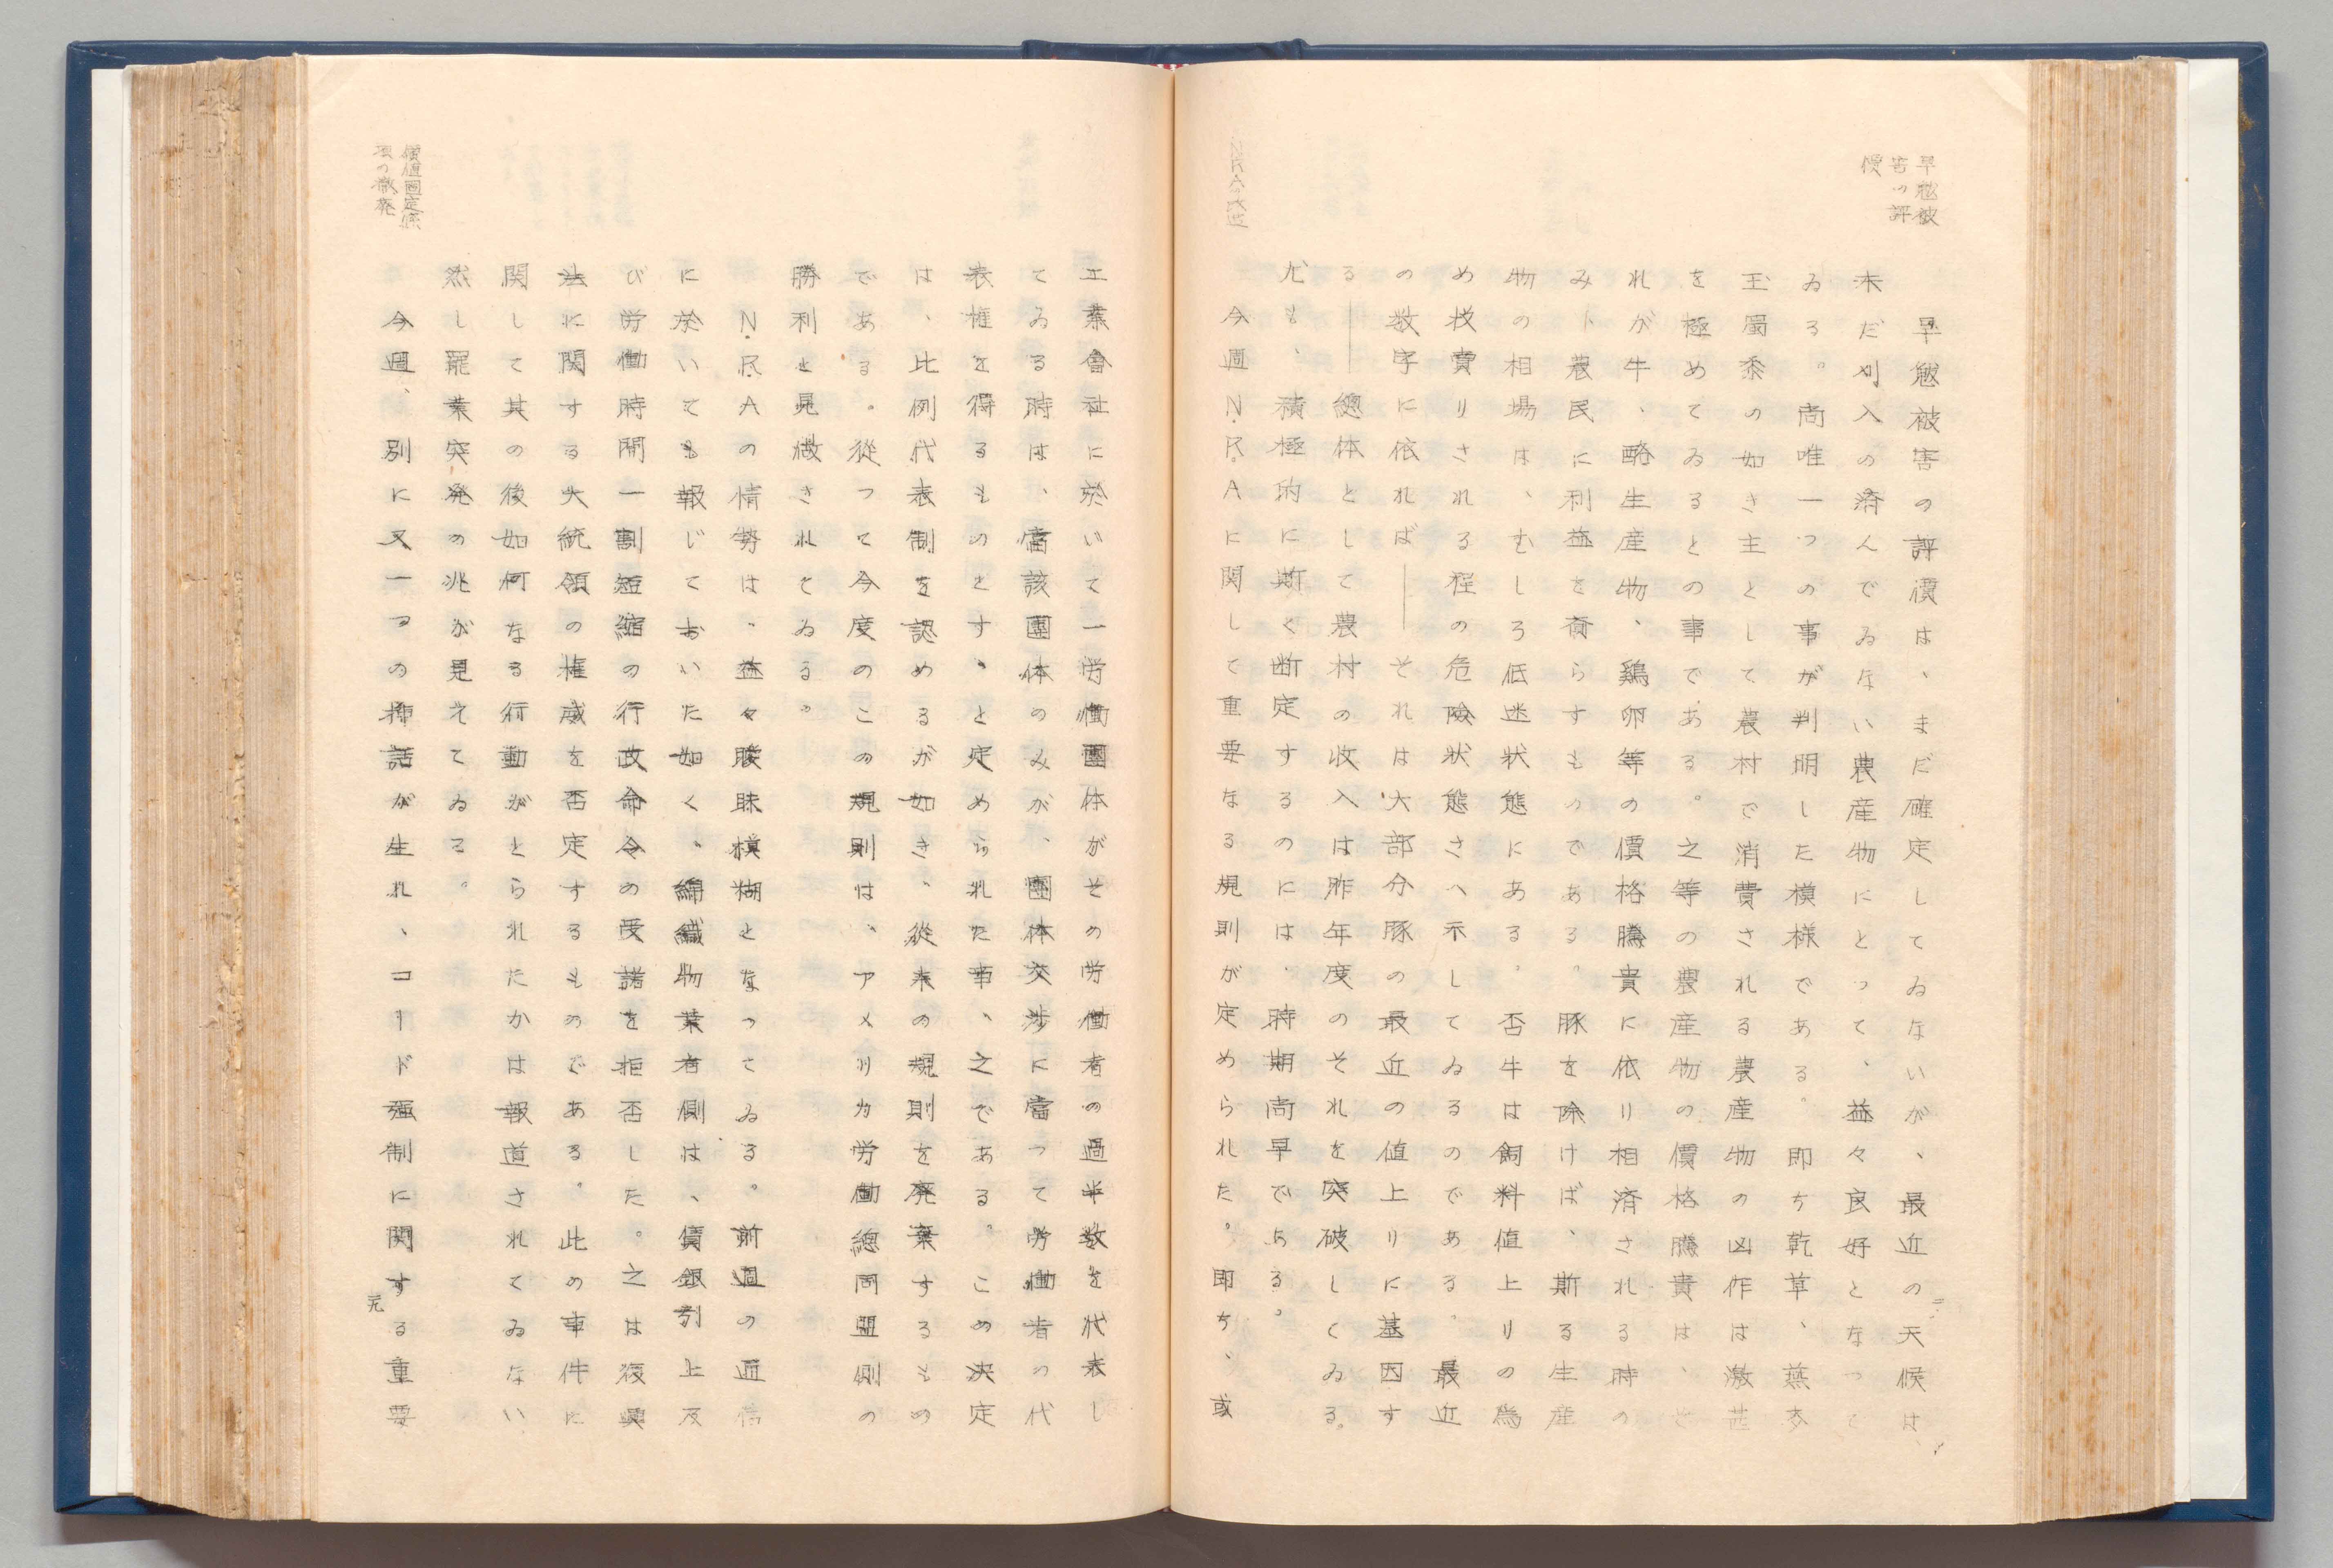 早魃被
害の評
價
早魃被害の評價は、まだ確定してゐないが、最近の天候は、
未だ刈入の済んでゐない農産物にとって、益々良好となって
ゐる。尚唯一つの事が判明した模様である。即ち乾草、燕麥
玉蜀黍の如き主として農村で消費される農産物の凶作は激甚
を極めてゐるとの事である。之等の農産物の價格騰貴は、そ
れが牛、酪生産物、鶏卵等の價格騰貴に依り相済される時の
み、農民に利益を齎らすものである。豚を除けば、斯る生産
物の相場は、むしろ低迷状態にある。否牛は飼料値上りの為
め投賣りされる程の危険状態さへ示してゐるのである。最近
の数字に依れば――それは大部分豚の最近の値上りに基因す
る――總体として農村の收入は昨年度のそれを突破してゐる。
尤も、積極的に斯く断定するのには、時期尚早である。
今週N.R.Aに関して重要なる規則が定められた。即ち、或
工業會社に於いて一労働團体がその労働者の過半数を代表し
てゐる時は、當該團体のみが、團体交渉に當って労働者の代
表権を得るものとす、と定められた事、之である。この決定
は、比例代表制を認めるが如き、從来の規則を廃棄するもの
である。從つて今度のこの規則は、アメリカ労働總同盟側の
勝利と見做されてゐる。
N.R.Aの情勢は、益々曖昧模糊となってゐる。前週の通信
に於いても報じておいた如く、綿織物業者側は、債銀割上及
び労働時間一割短縮の行政命令の受諾を拒否した。之は復興
法に関する大統領の権威を否定するものである。此の事件に
関して其の後如何なる行動がとられたかは報道されてゐない
然し罷業突発の兆が見えてゐる。
價値固定條
項の撤廃
今週、別に又一つの挿話が生れ、コード強制に関する重要